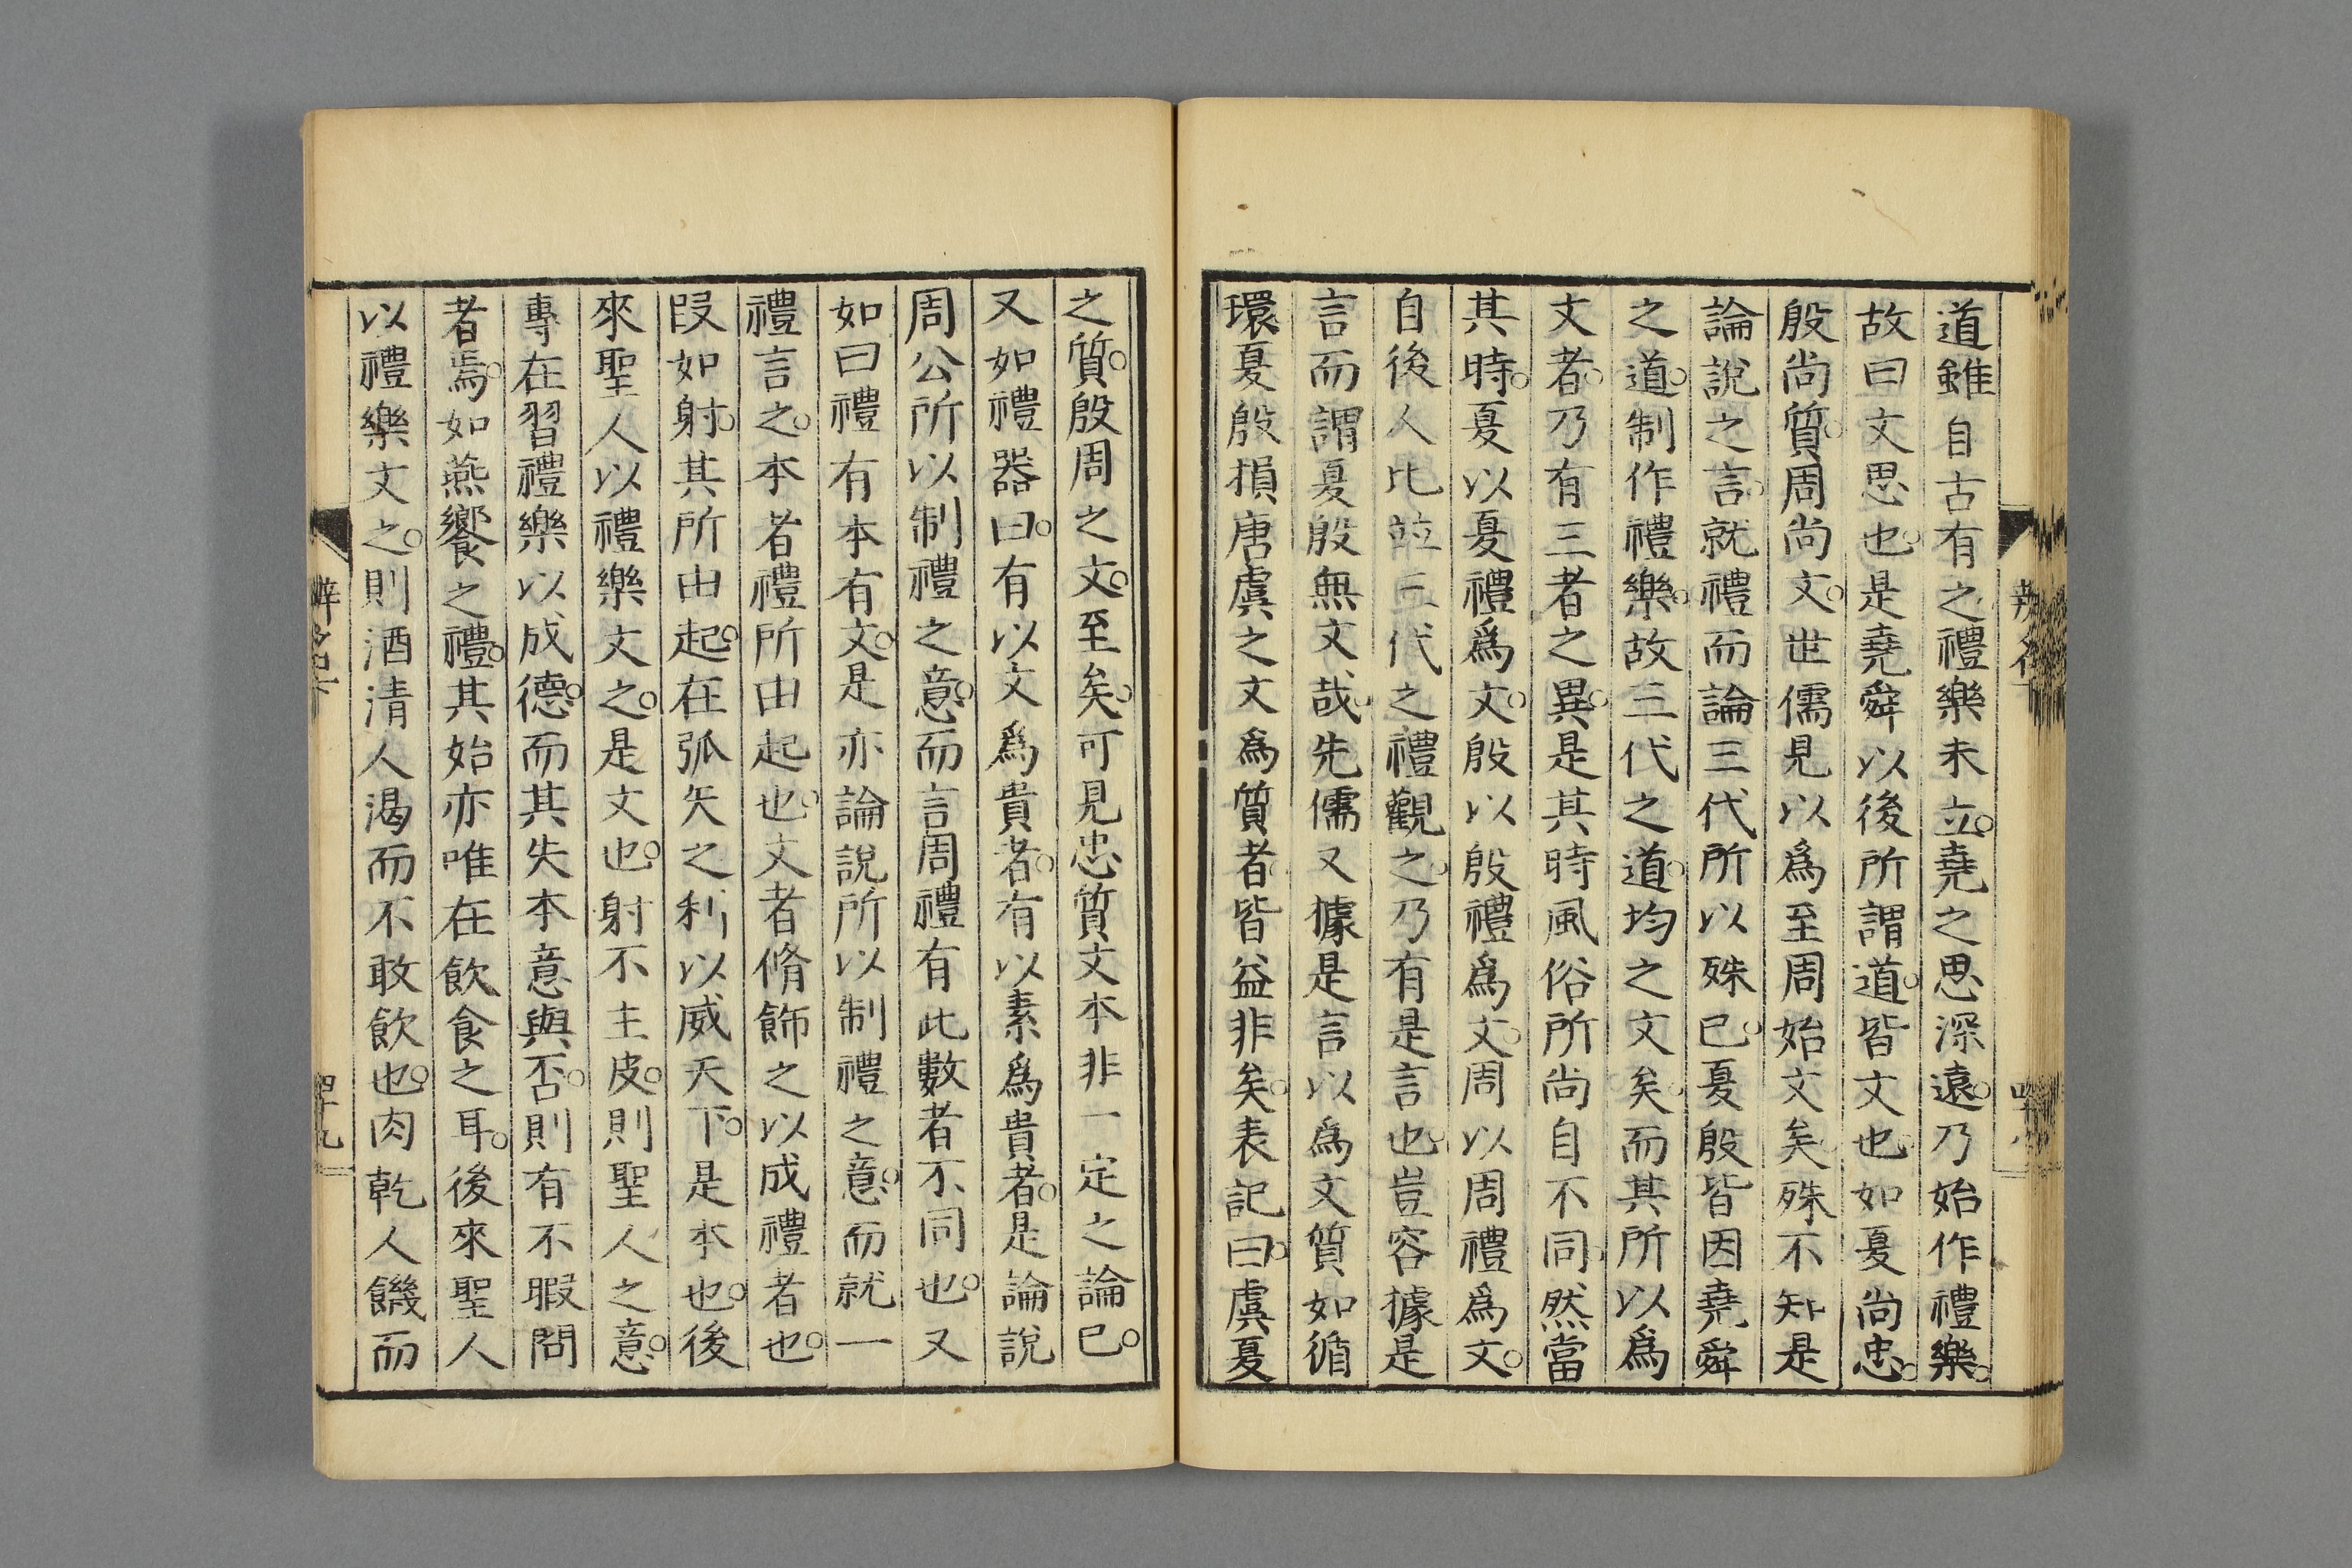 道雖自古有之禮樂未立。堯之思深遠。乃始作禮樂。
故曰文思也。是堯舜以後所謂道。皆文也。如夏尚忠。
殷尚質。周尚文。世儒見以爲至周始文矣。殊不知是
論說之言。就禮而論三代所以殊已。夏殷皆因堯舜
之道。制作禮樂。故三代之道。均之文矣。而其所以爲
文者。乃有三者之異。是其時風俗所尚自不同。然當
其時。夏以夏禮爲文。殷以殷禮爲文。周以周禮爲文。
自後人比並三代之禮觀之。乃有是言也。豈容據是
言而謂夏殷無文哉。先儒又據是言以爲文質如循
環。夏殷損唐虞之文爲質者。皆益非矣。表記曰。虞夏
之質。殷周之文。至矣。可見忠質文本非一定之論已。
又如禮器曰。有以文爲貴者。有以素爲貴者。是論說
周公所以制禮之意。而言周禮有此數者不同也。又
如曰禮有本有文。是亦論說所以制禮之意。而就一
禮言之。本者禮所由起也。文者脩飾之以成禮者也。
段如射。其所由起。在弧矢之利以威天下。是本也。後
來聖人以禮樂文之。是文也。射不主皮。則聖人之意。
專在習禮樂以成德。而其失本意與否。則有不暇問
者焉。如燕饗之禮。其始亦唯在飲食之耳。後來聖人
以禮樂文之。則酒清人渴而不敢飲也。肉乾人饑而
辨名下
四十九